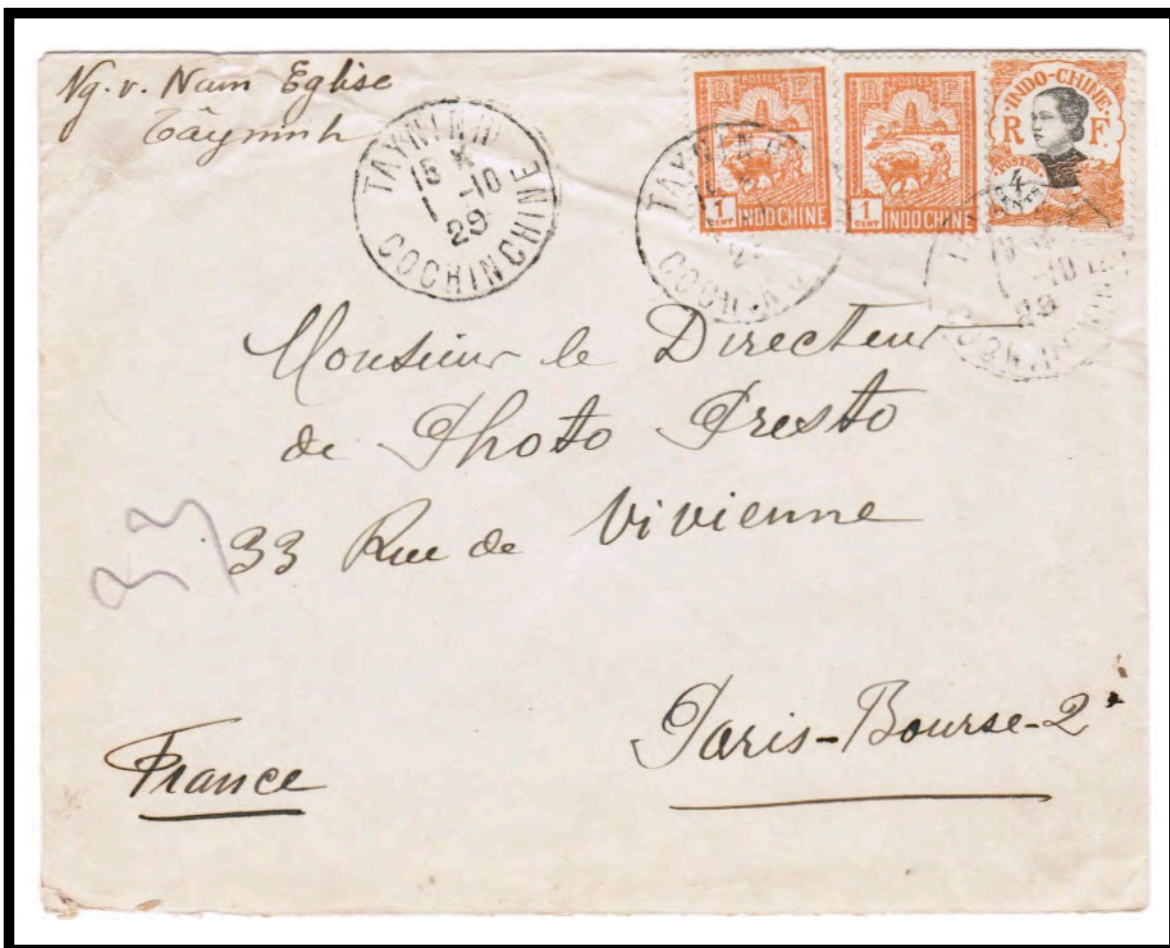 Ng. v. Nam Eglise
Tâyninh
TAYNINH
15 X
1 -10
29
COCHINCHINE
POSTES
R F
1
CENT
INDOCHINE
POSTES
R F
1
CENT
INDOCHINE
INDO-CHINE
R F.
POSTES
4
CENTS
TAYNIN
COCH
-10
29
Monsieur le Directeur
de Photo Presto
33 Rue de Vivienne
Paris-Bourse-2
France